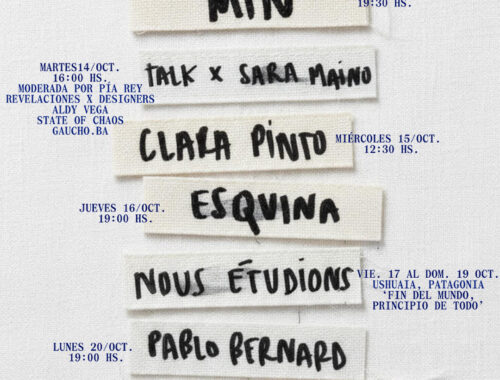 MIN
19:30 HS.
MARTES14/OCT.
16:00 HS.
MODERADA POR PÍA REY
REVELACIONES X DESIGNERS
ALDY VEGA
STATE OF CHAOS
GAUCHO.BA
TALK X SARA MAINO
CLARA PINTO
MIÉRCOLES 15/OCT.
12:30 HS.
JUEVES 16/OCT.
19:00 HS.
ESQUINA
NOUS ÉTUDIONS
VIE. 17 AL DOM. 19 OCT.
USHUAIA, PATAGONIA
‘FIN DEL MUNDO,
PRINCIPIO DE TODO’
LUNES 20/OCT.
19:00 HS.
PABLO BERNARD